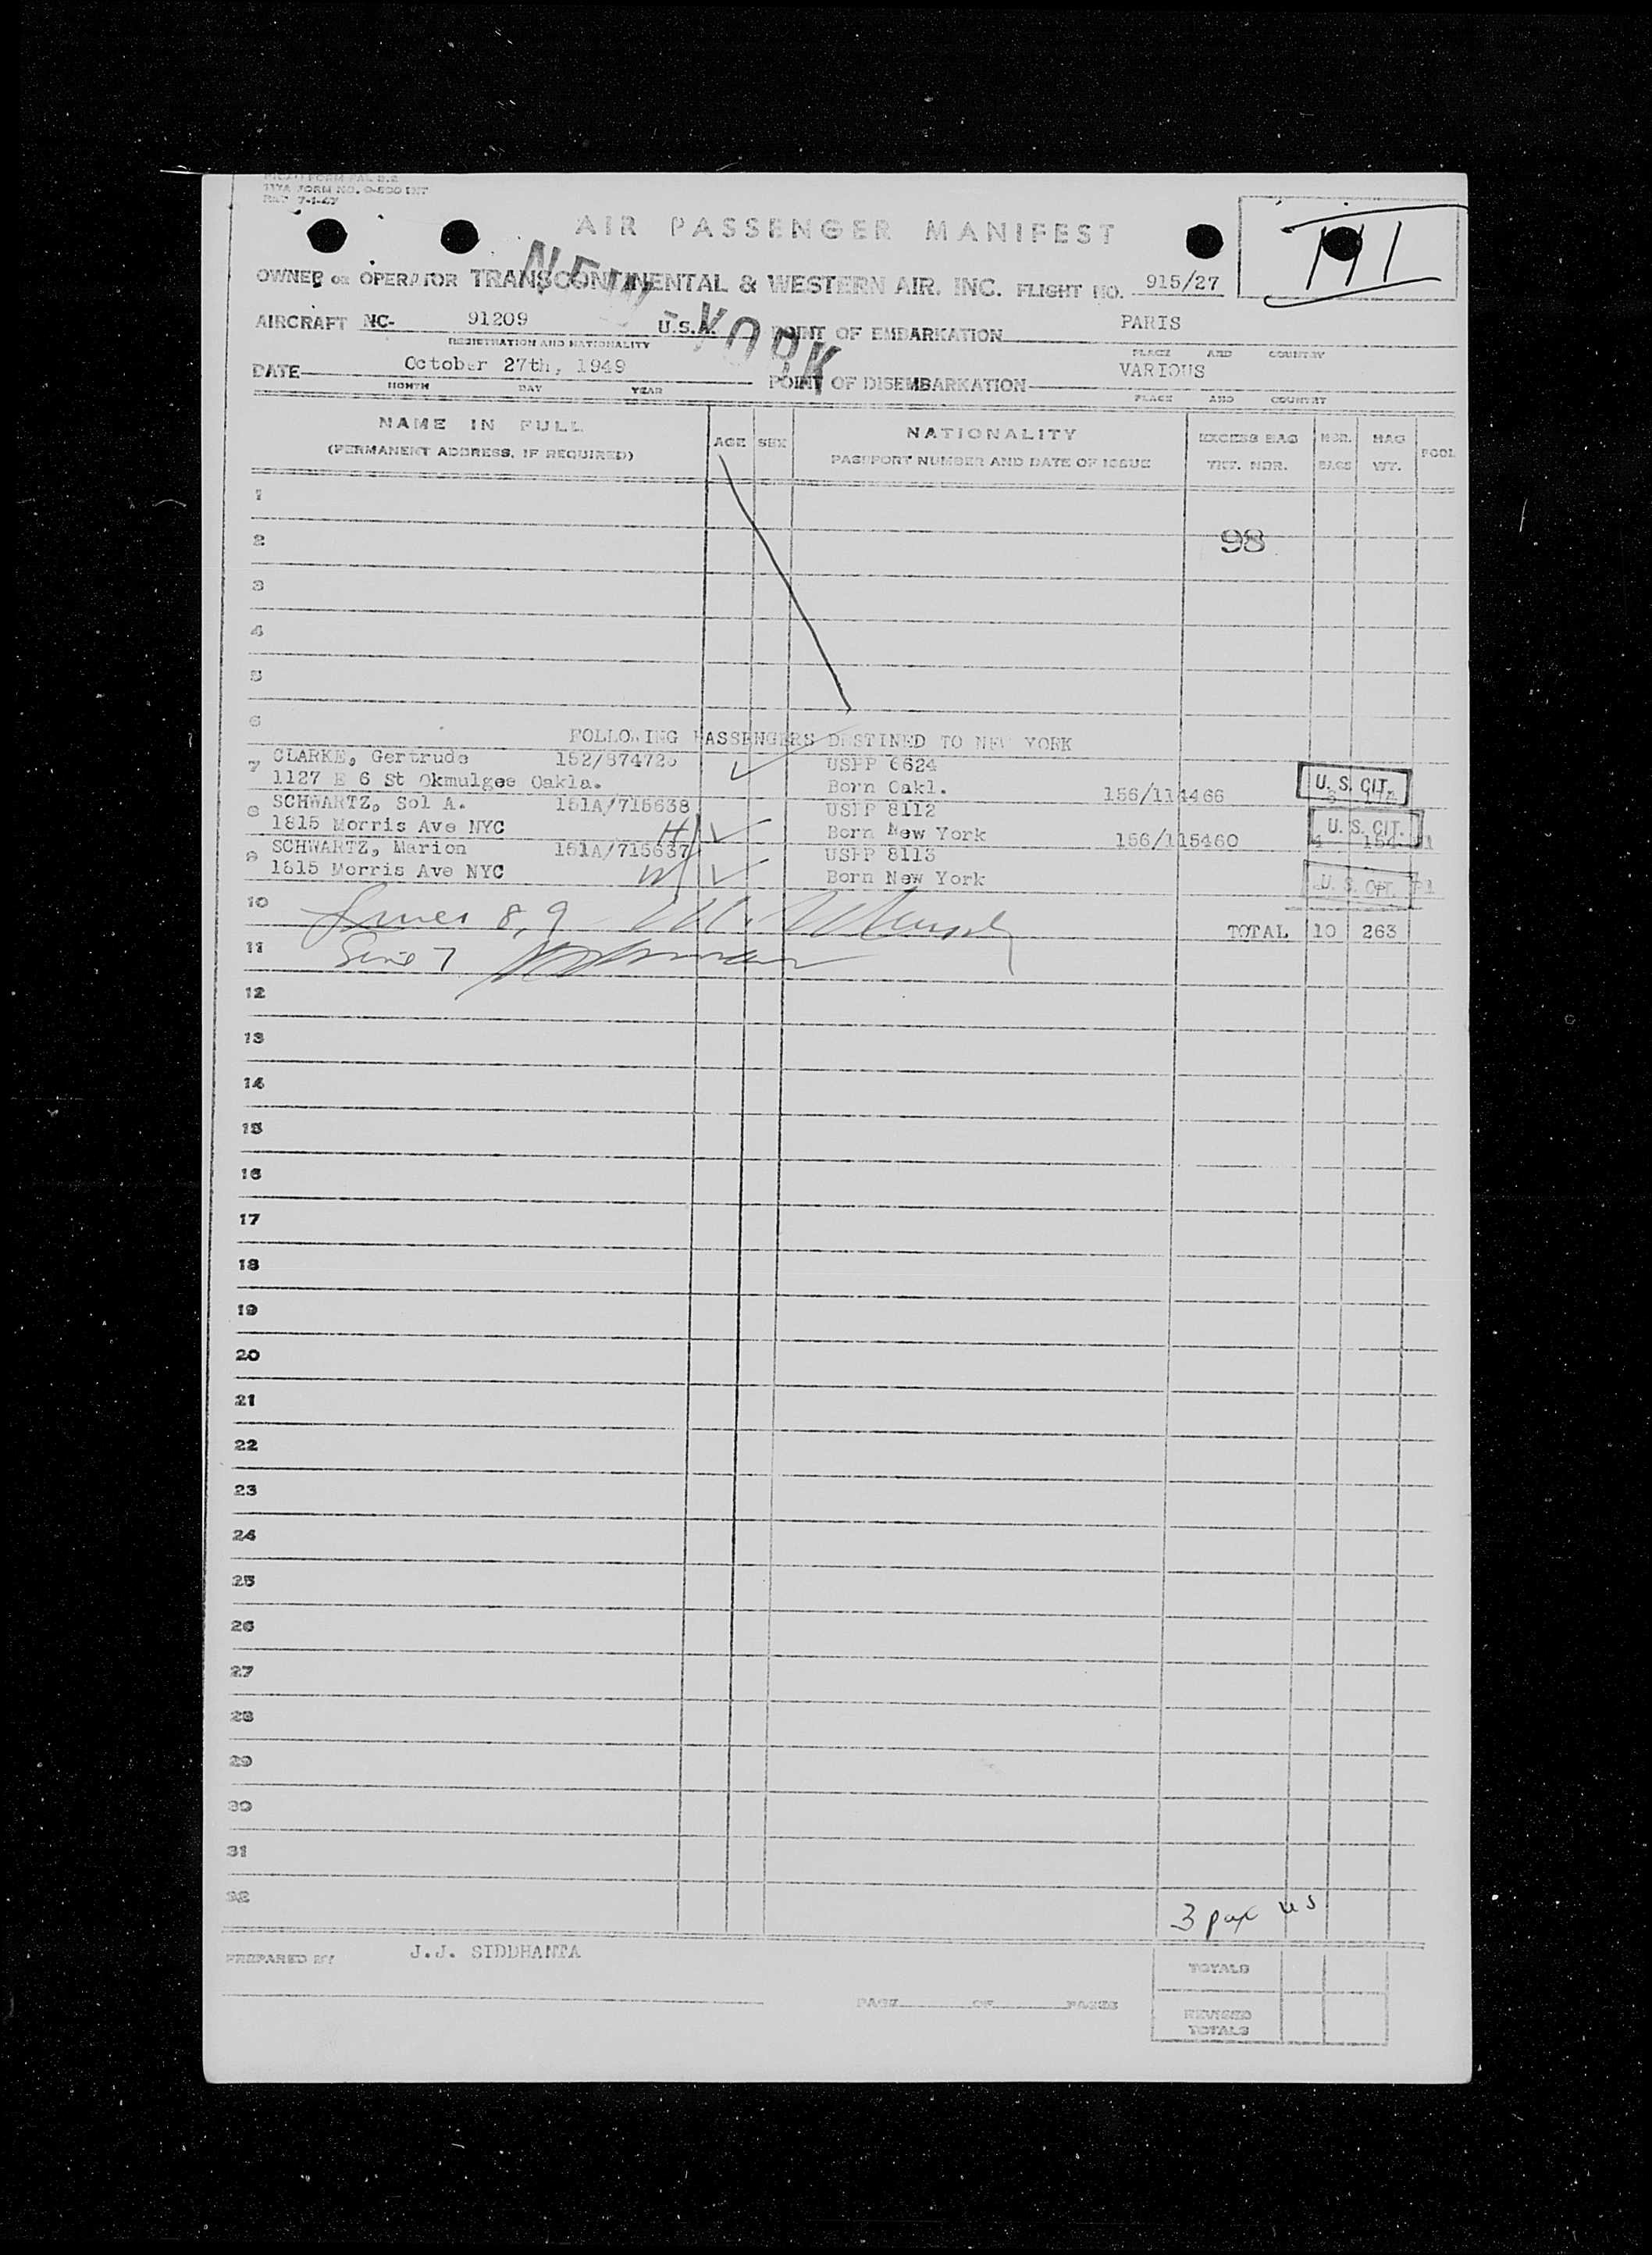 TWA FORM NO. O-800 INT
7-1-47
AIR PASSENGER MANIFEST
III
OWNER OR OPERATOR TRANSCONTINENTAL & WESTERN AIR, INC. FLIGHT NO. 915/27
NEW YORK
AIRCRAFT NC- 91209 U.S.A. POINT OF EMBARKATION PARIS
REGISTRATION AND NATIONALITY PLACE AND COUNTRY
DATE October 27th, 1949 POINT OF DISEMBARKATION VARIOUS
MONTH DAY YEAR PLACE AND COUNTRY
NAME IN FULL AGE SEX NATIONALITY EXCESS BAG NBR. BAG POOL
(PERMANENT ADDRESS, IF REQUIRED) PASSPORT NUMBER AND DATE OF ISSUE TKT. NBR. BAGS WT.
1
2 98
3
4
5
6 FOLLOWING PASSENGERS DESTINED TO NEW YORK
7 CLARKE, Gertrude 152/874725 USPP 6624
1127 E 6 St Okmulgee Oakla. Born Oakl. 156/114466 U. S. CIT.
8 SCHWARTZ, Sol A. 151A/715638 USPP 8112
1815 Morris Ave NYC H Born New York 156/115460 U. S. CIT.
9 SCHWARTZ, Marion 151A/715637 USPP 8113
1815 Morris Ave NYC W Born New York U. S. CIT.
10 Lines 8, 9
TOTAL 10 263
11 Line 7
12
13
14
15
16
17
18
19
20
21
22
23
24
25
26
27
28
29
30
31
32 3 pax us
PREPARED BY J.J. SIDDHANTA TOTALS
PAGE OF PAGES REVISED
TOTALS